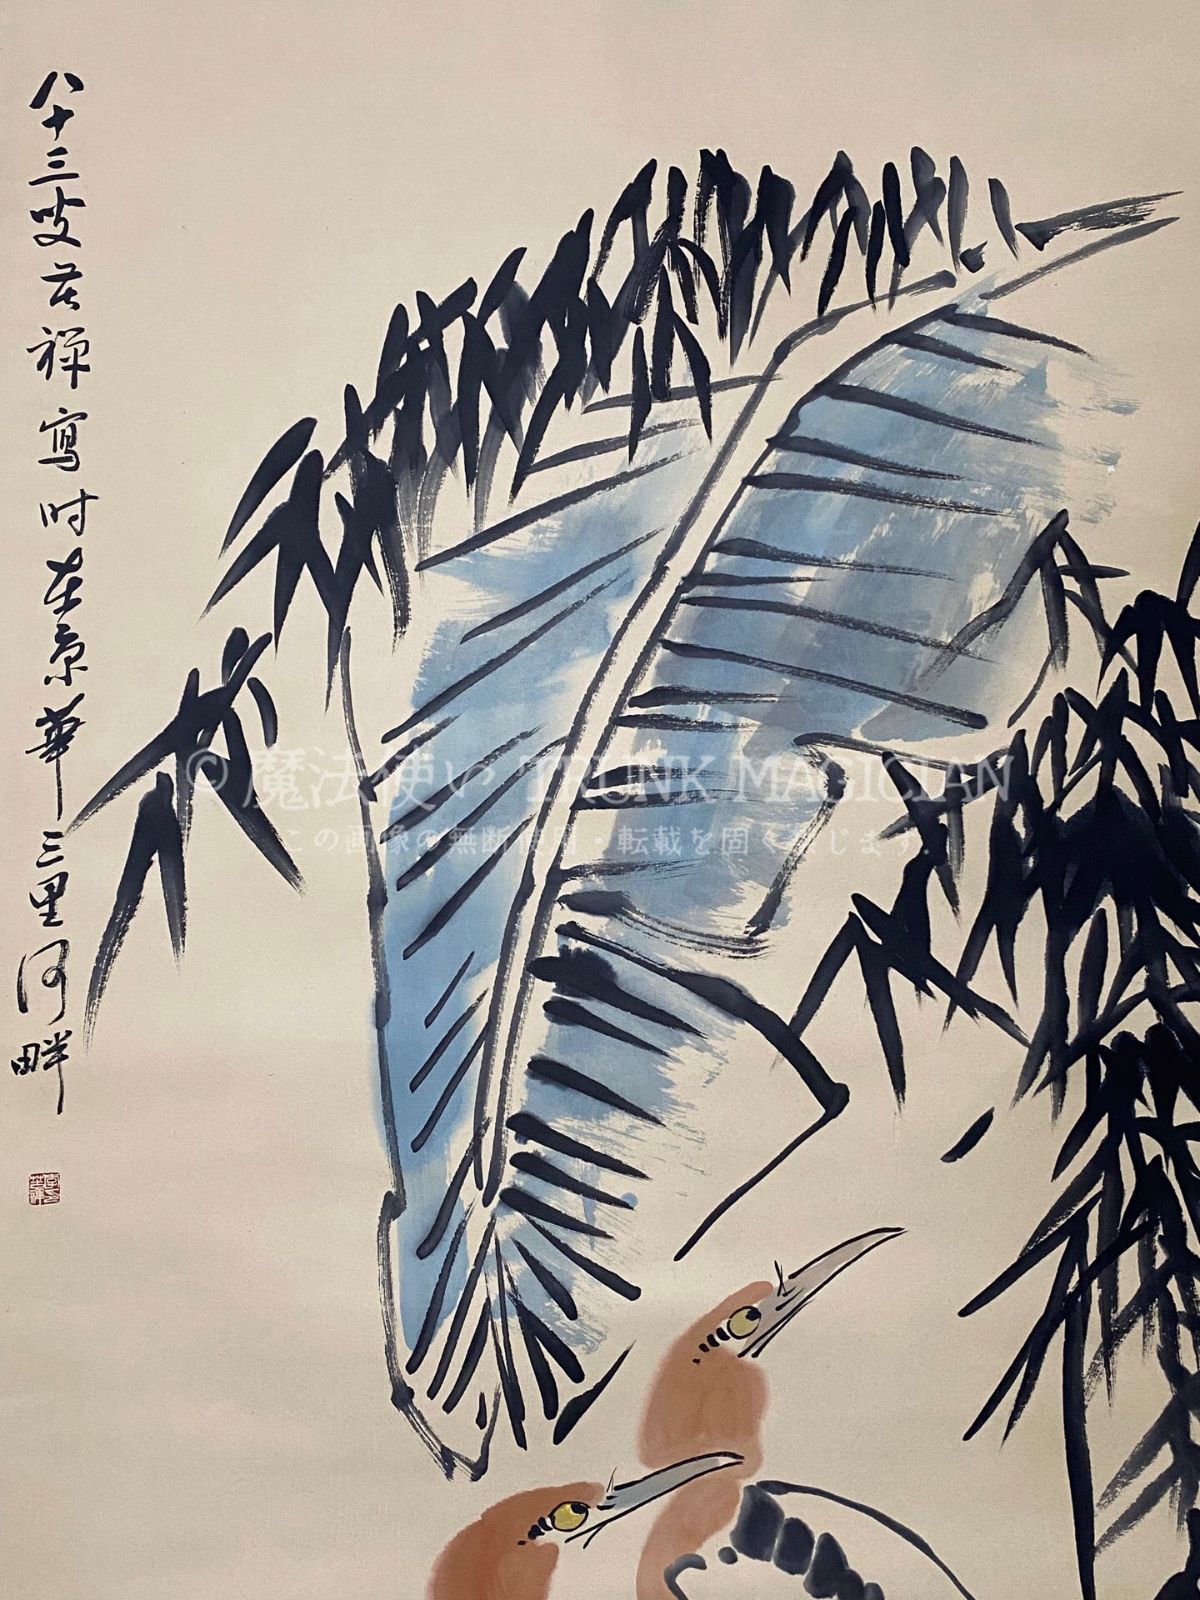 八十三叟苦禅寫时在京華三里河畔
© 魔法使い TRUNK MAGICIAN
この画像の無断使用・転載を固く禁じます.